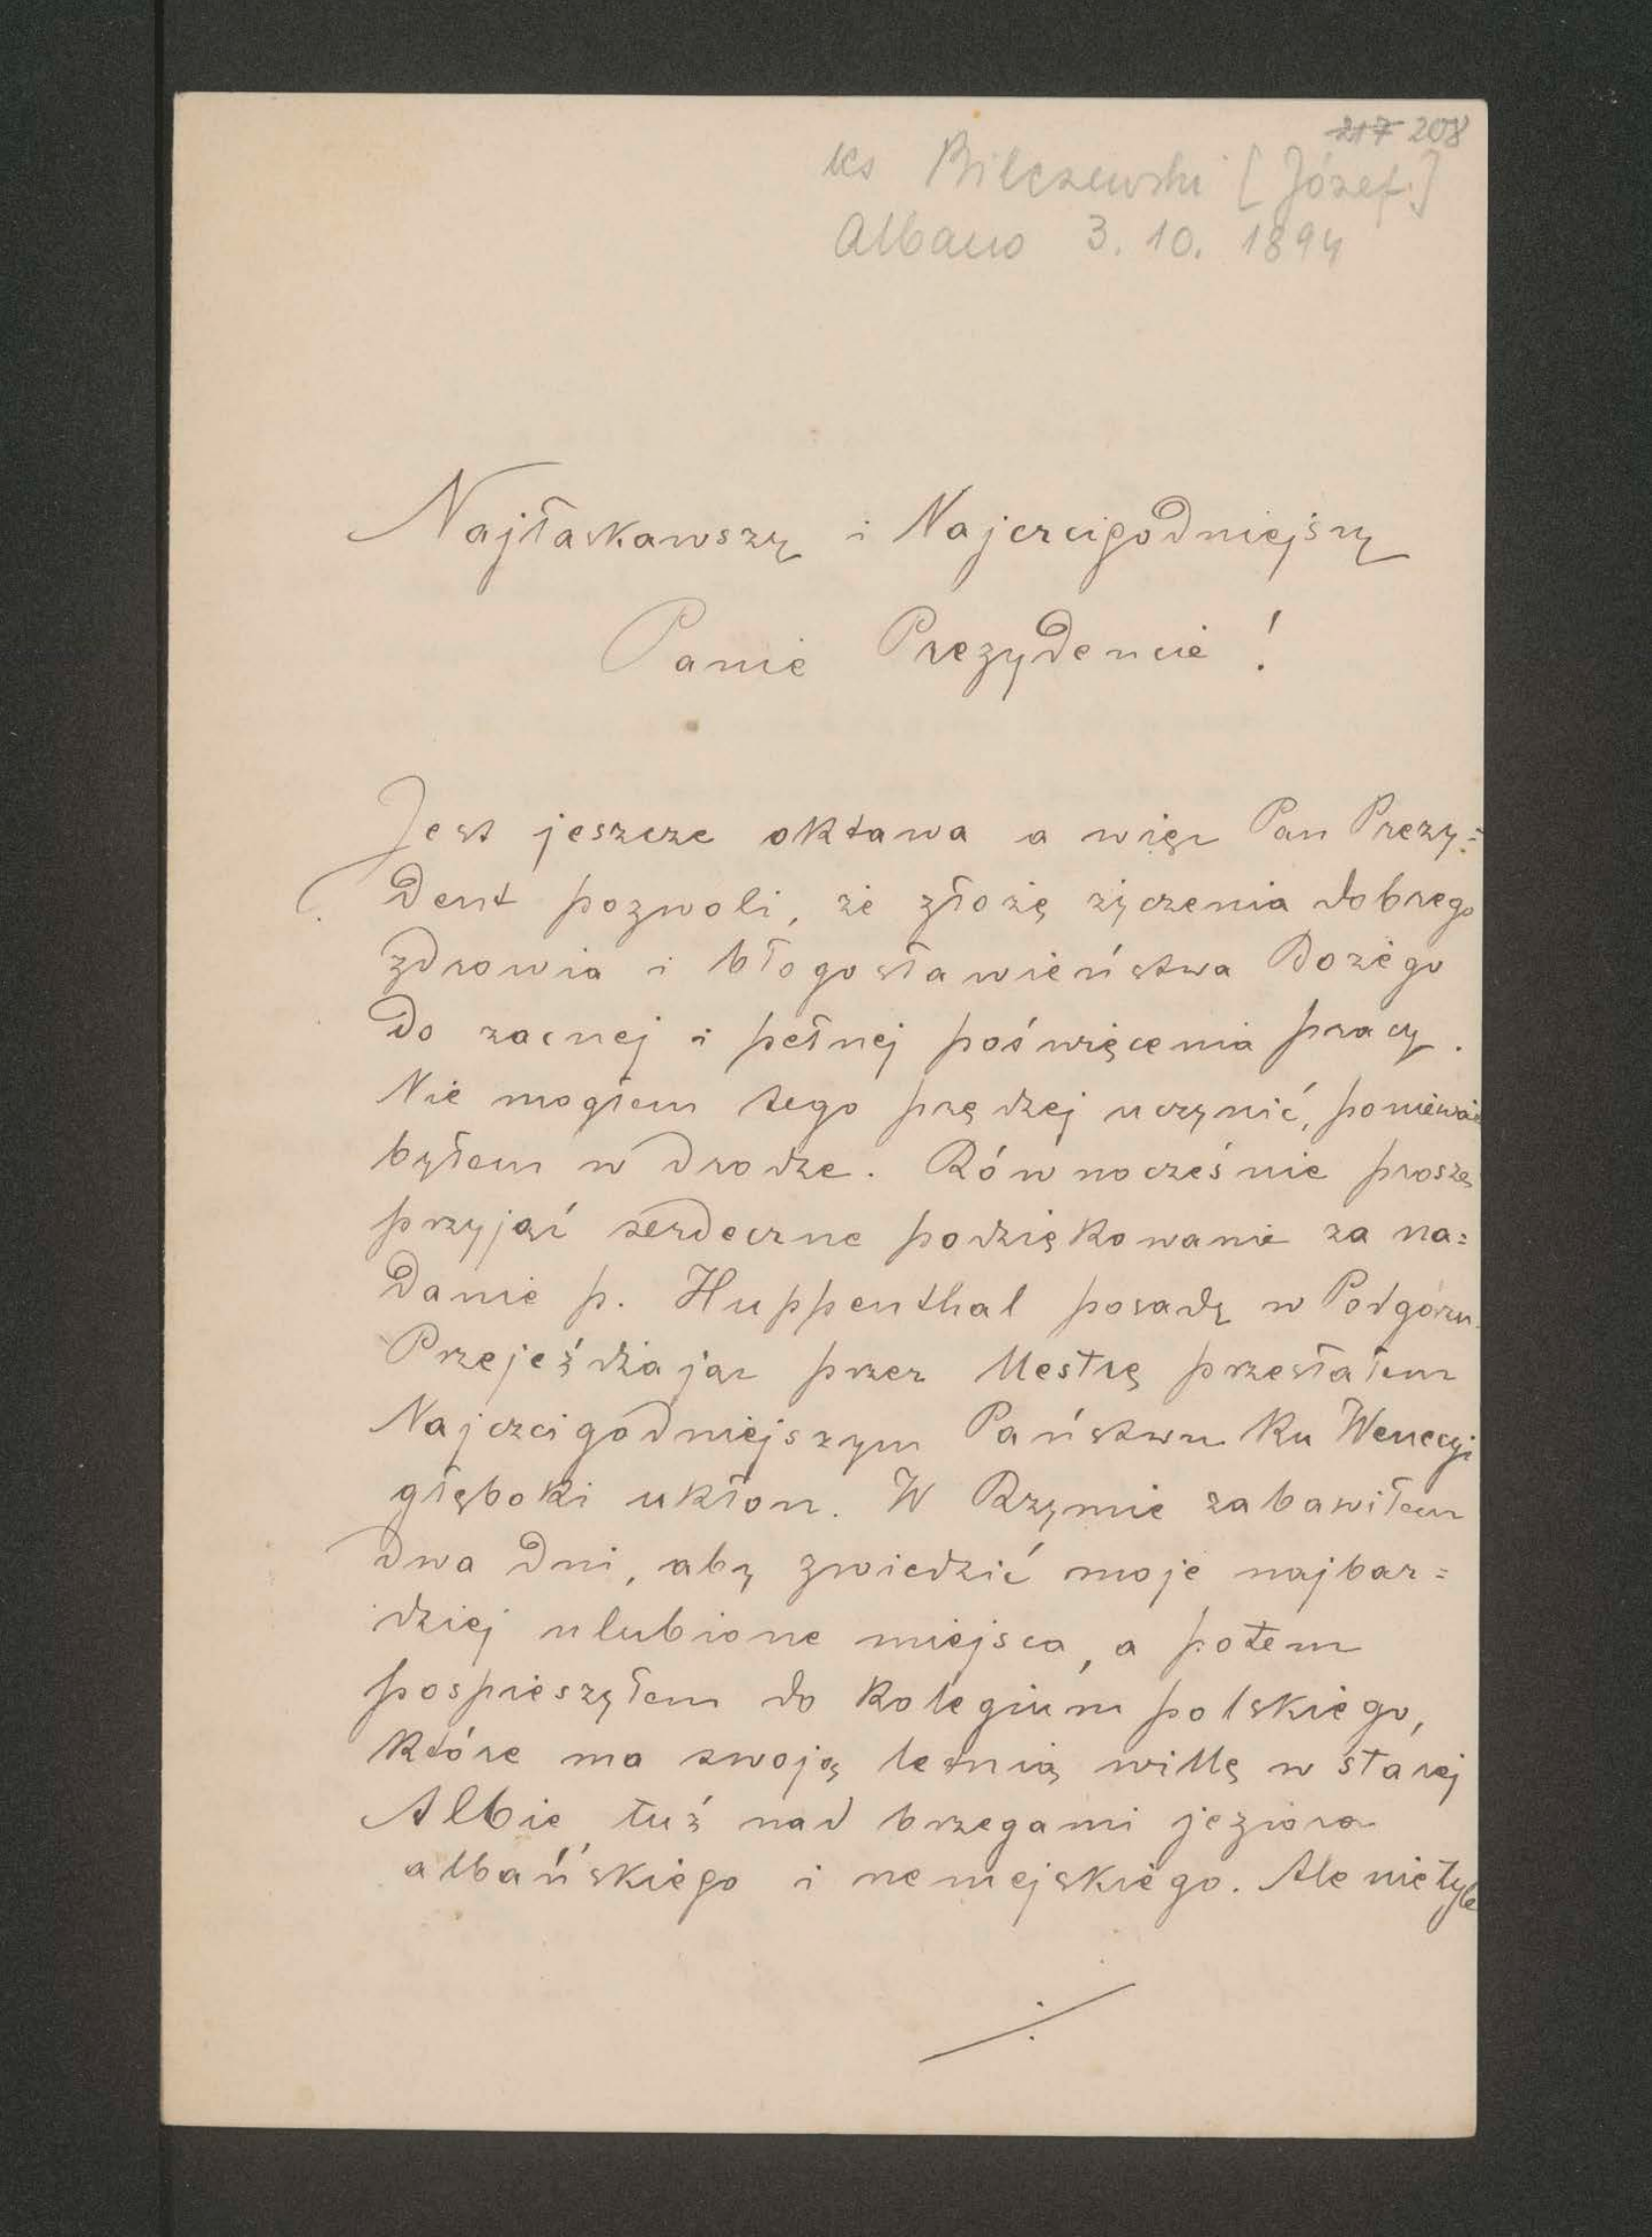 217 208
ks Bilczewski [Józef]
Albano 3. 10. 1894
Najłaskawszy i Najczcigodniejszy
Panie Prezydencie!
Jest jeszcze oktawa a więc Pan Prezy=
dent pozwoli, że złożę życzenia dobrego
zdrowia i błogosławieństwa Bożego
do zacnej i pełnej poświęcenia pracy.
Nie mogłem tego prędzej uczynić, ponieważ
byłem w drodze. Równocześnie proszę
przyjąć serdeczne podziękowanie za na=
danie p. Huppenthal posady w Podgórzu.
Przejeżdżając przez Mestrę przesłałem
Najczcigodniejszym Państwu ku Wenecyi
głęboki ukłon. W Rzymie zabawiłem
dwa dni, aby zwiedzić moje najbar=
dziej ulubione miejsca, a potem
pospieszyłem do Kolegium polskiego,
które ma swoją letnią willę w starej
Albie, tuż nad brzegami jeziora
albańskiego i nemejskiego. Ale nietyle
./.